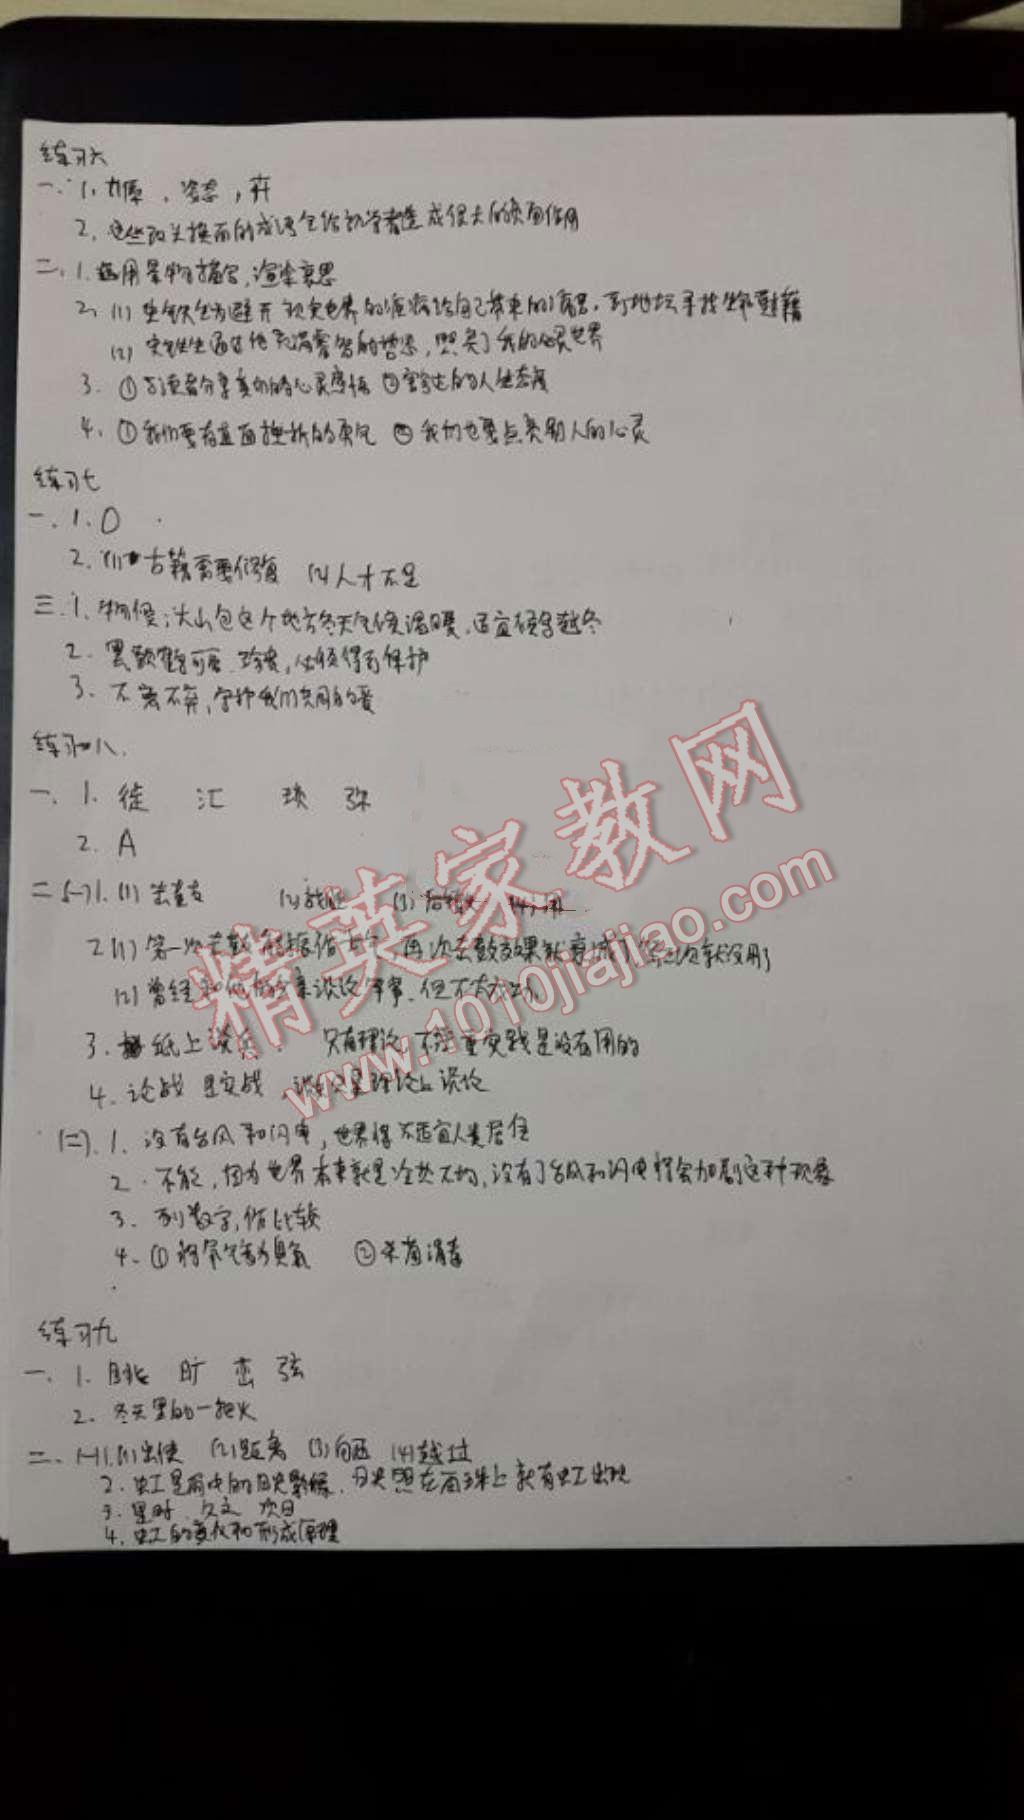 练习六
一. 1. 姿态, 卉
2. 这些改头换面的成语会给初学者造成很大的负面作用
二. 1. 运用景物描写, 渲染哀思
2. (1) 史铁生为避开现实世界的 给自己带来的痛苦, 到地坛寻找
(2) 史铁生通过他充满睿智的哲思, 照亮了我的心灵世界
3. ① 与读者分享真切的心灵感悟 ② 的人生态度
4. ① 我们要有直面挫折的勇气 ② 我们也要点亮别人的心灵
练习七
一. 1. D
2. (1) 古籍需要修复 (2) 人才不足
三. 1. 物候; 大山包这个地方冬天气候温暖, 适宜候鸟越冬
2. 黑颈鹤可爱、珍贵, 必须得到保护
3. 不离不弃, 守护我们共同的爱
练习八
一. 1. 徒 汇 琐 弥
2. A
二 (一) 1. (1) (2)
2 (1) 第一次击鼓能振作士气, 再次击鼓效果就衰减了, 第三次就没用了
(2) 曾经和他父亲谈论军事, 但不
3. 纸上谈兵: 只有理论, 不注重实践是没有用的
4. 论战 是实战, 理论上谈论
(二). 1. 没有台风和闪电, 世界得不适宜人类居住
2. 不能, 因为世界本来就是冷热不均, 没有了台风和闪电将会加剧这种现象
3. 列数字, 作比较
4. ① 将氧气变为臭氧 ② 杀菌消毒
练习九
一. 1. 眺 旷 峦 弦
2. 冬天里的一把火
二. (一) 1. (1) 出使 (2) 距离 (3) (4) 越过
2. 虹是雨中的日光影像, 日光照在雨珠上就有虹出现
3. 是时 久之 次日
4. 虹的变化和形成原理
精英家教网
www.1010jiajiao.com